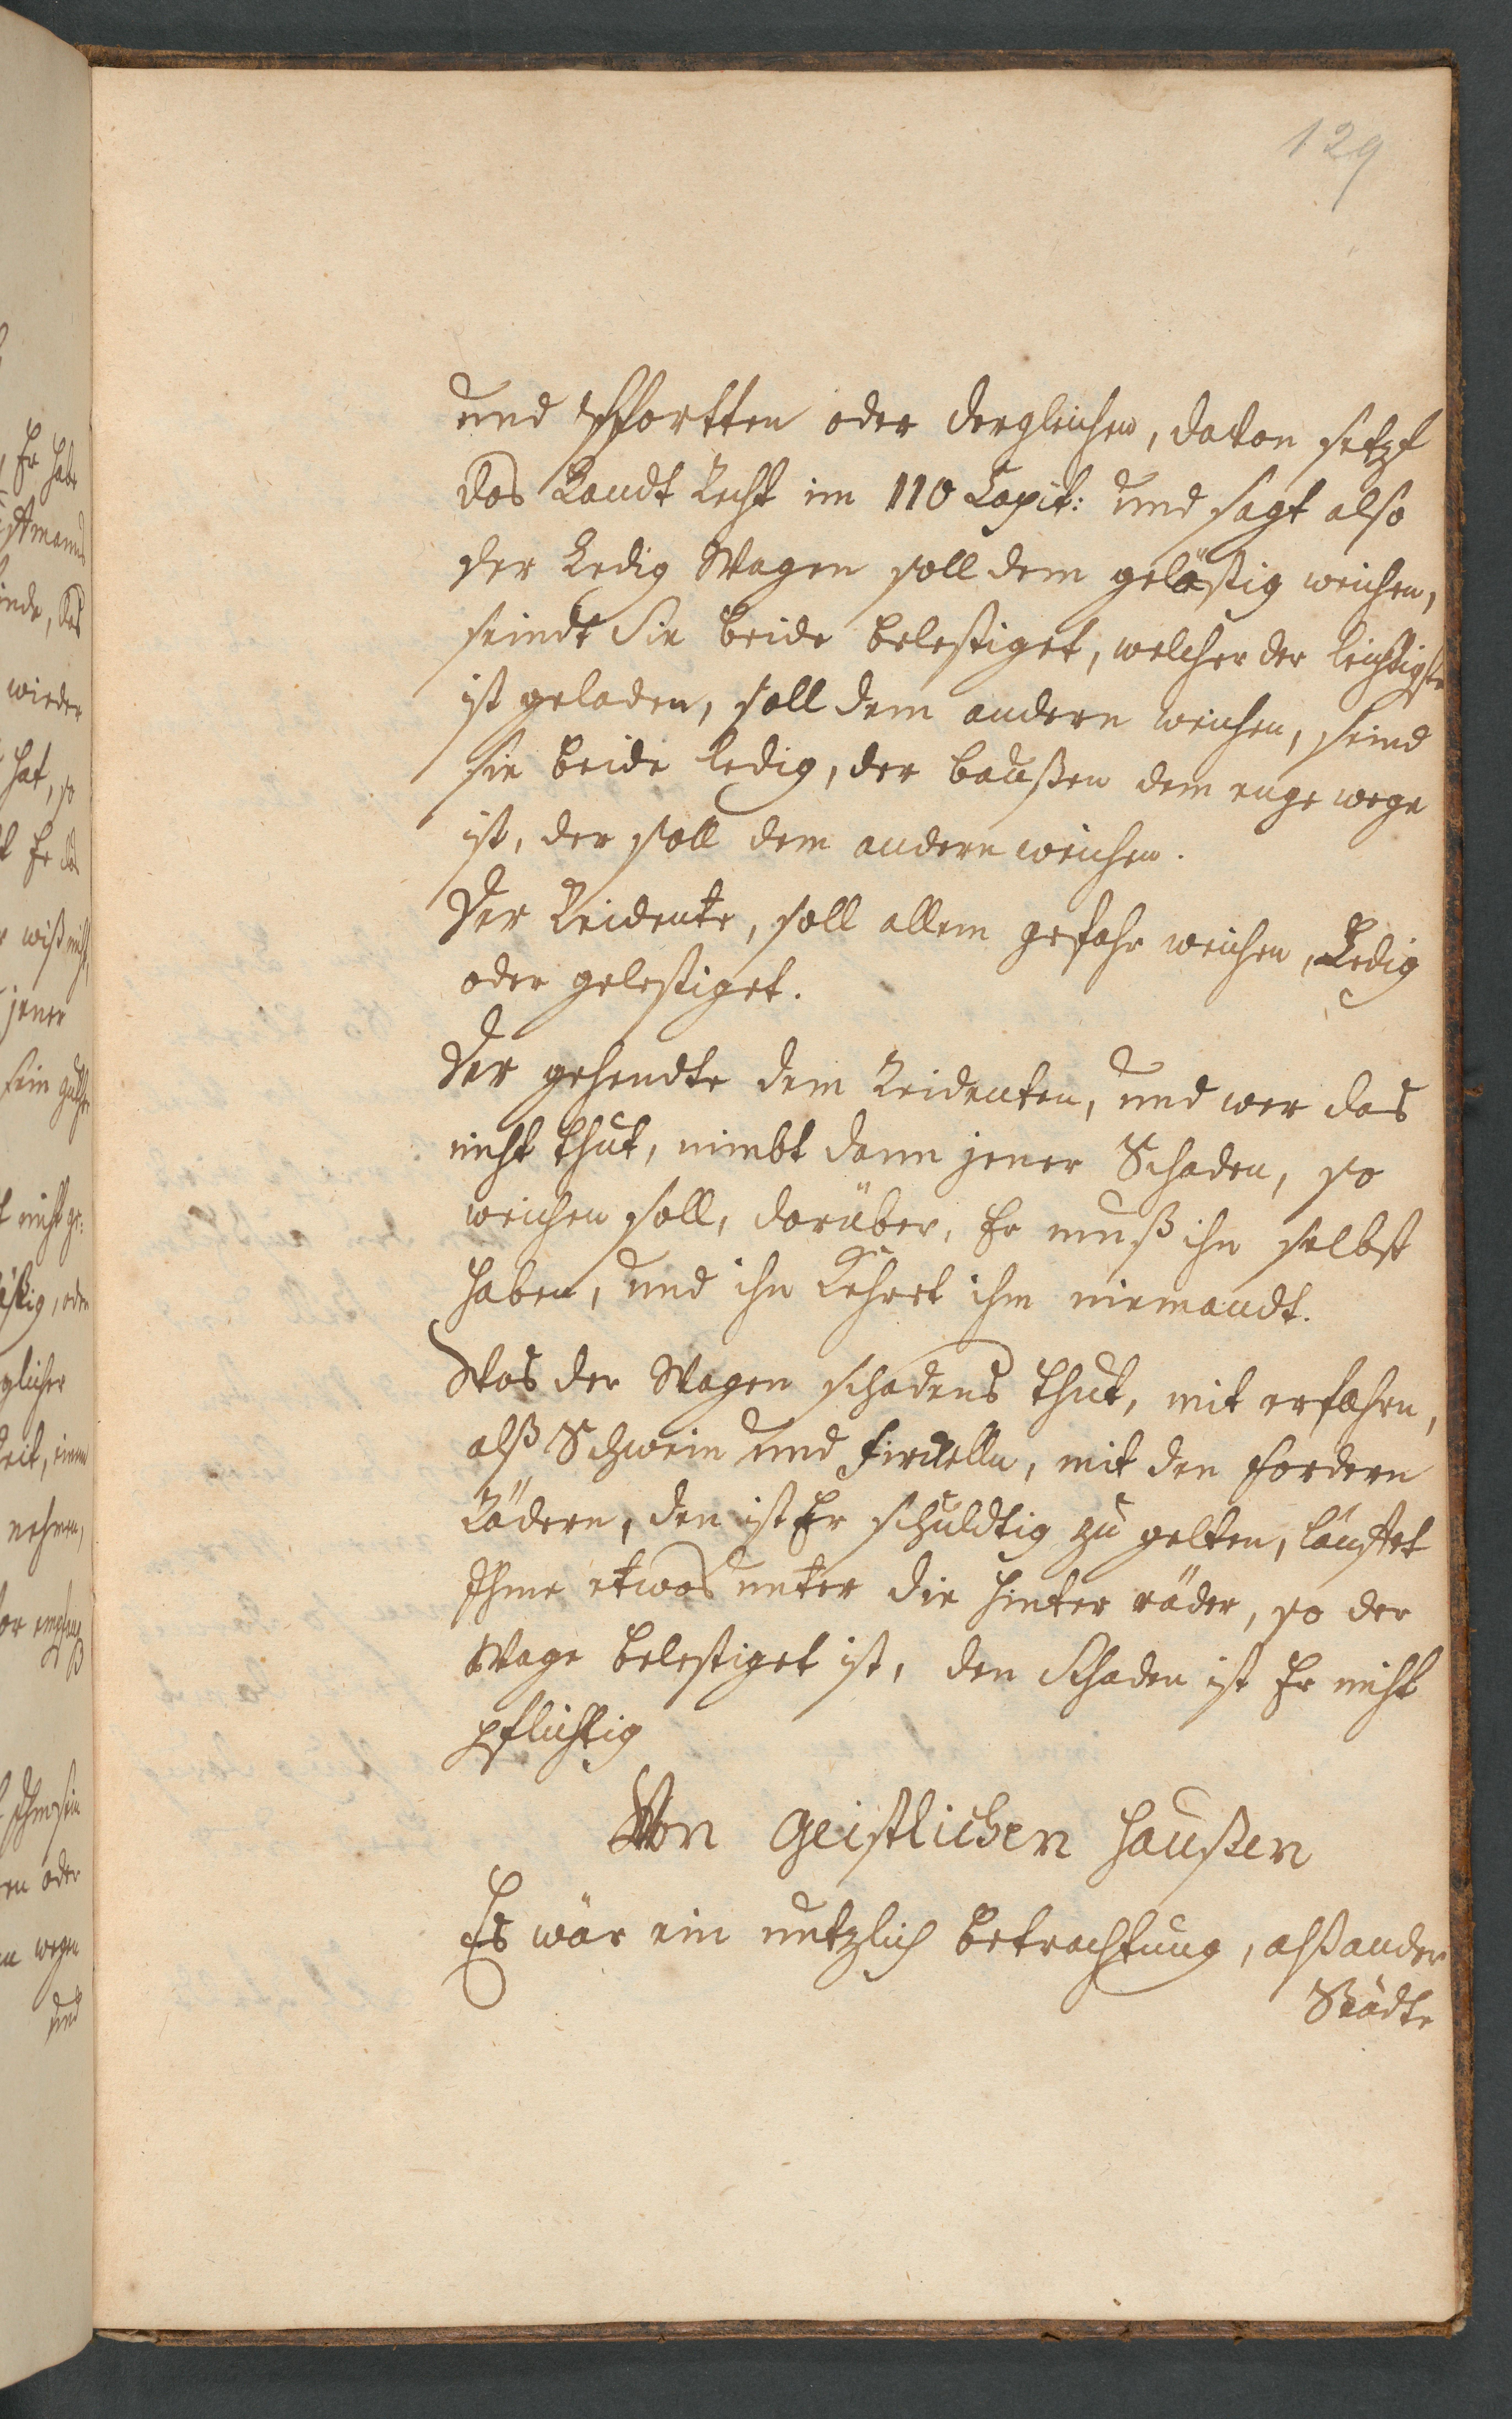 129
und Pfortten oder dergleichen, davon setzt
das Landt Recht im 110 Capit: und sagt also
der Ledig Wagen soll dem gelästig weichen,
seindt Sie beide belestiget, welcher der leichtigste
ist geladen, soll dem andern weichen, seind
sie beide ledig, der baussen dem enge wege
ist, der soll dem andern weichen.
Der Reidente, soll allem gefahr weichen, Ledig
oder gelestiget.
Der gehendte dem Reidenten, und wer das
nicht thut, nimbt dann jener Schaden, so
weichen soll, darüber, Er muß ihn selbst
haben, und ihn Kehret ihm niemandt.
Was der Wagen schadens thut, mit erfahrn,
alß Schwein und Firckelln, mit den fordern
Rädern, den ist Er schuldtig zu gelten, läuftet
Ihme etwas unter die hinter räder, so der
Wage belestiget ist, den Schaden ist Er nicht
pflichtig
Von Geistlichen Haußen
Es wär ein nutzlich betrachtung, alß ander
Städte
Er habe
wieder
hat, so
jener
nicht ge:
oder
nehmen,
oder
wegen
und